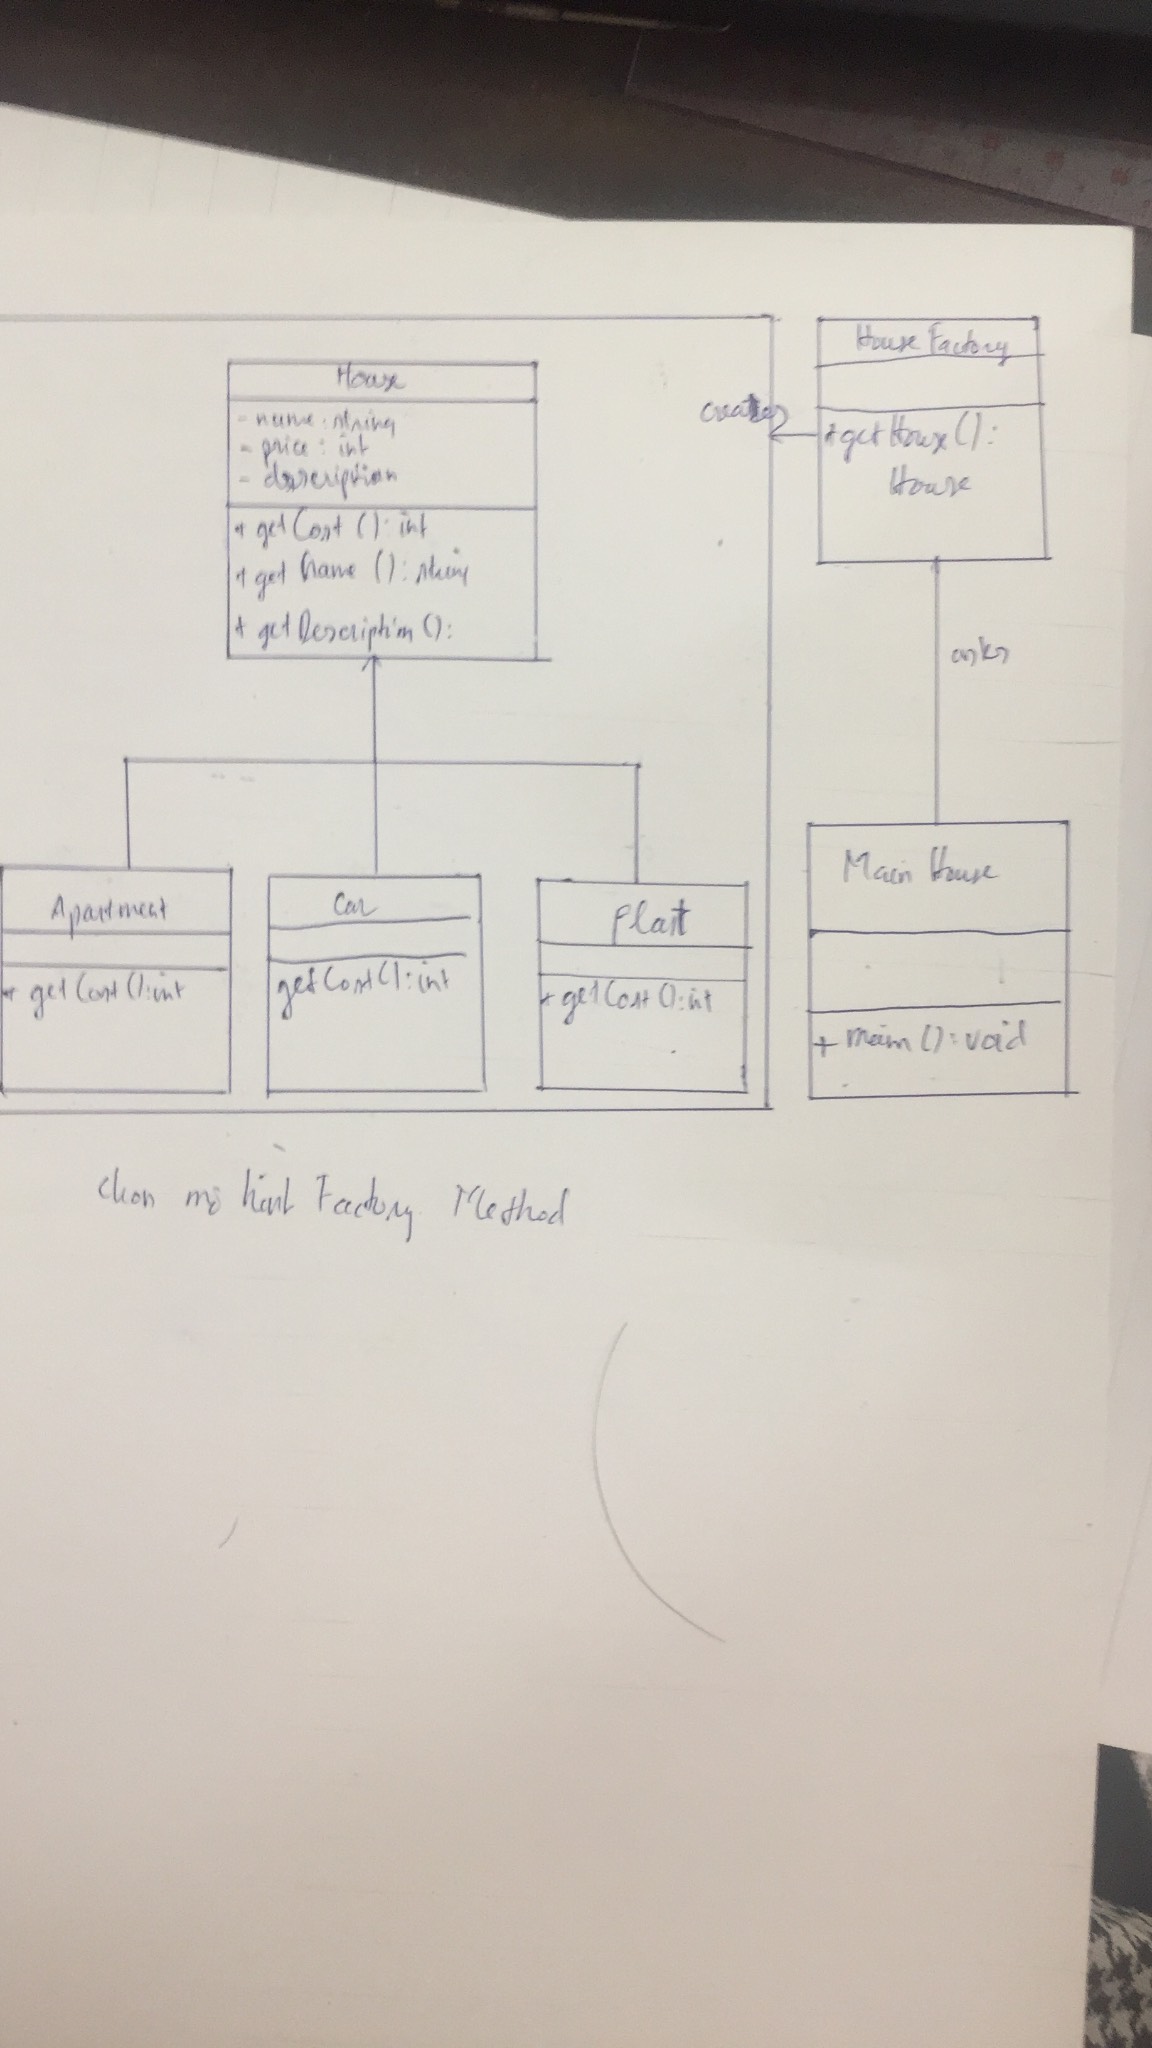 House
- name: string
- price: int
- description
+ getCost (): int
+ getName (): string
+ getDescription ():
House Factory
creates
+ getHouse ():
House
asks
Apartment
+ getCost (): int
Car
getCost (): int
Plant
+ getCost (): int
Main House
+ main (): void
chọn mô hình Factory Method